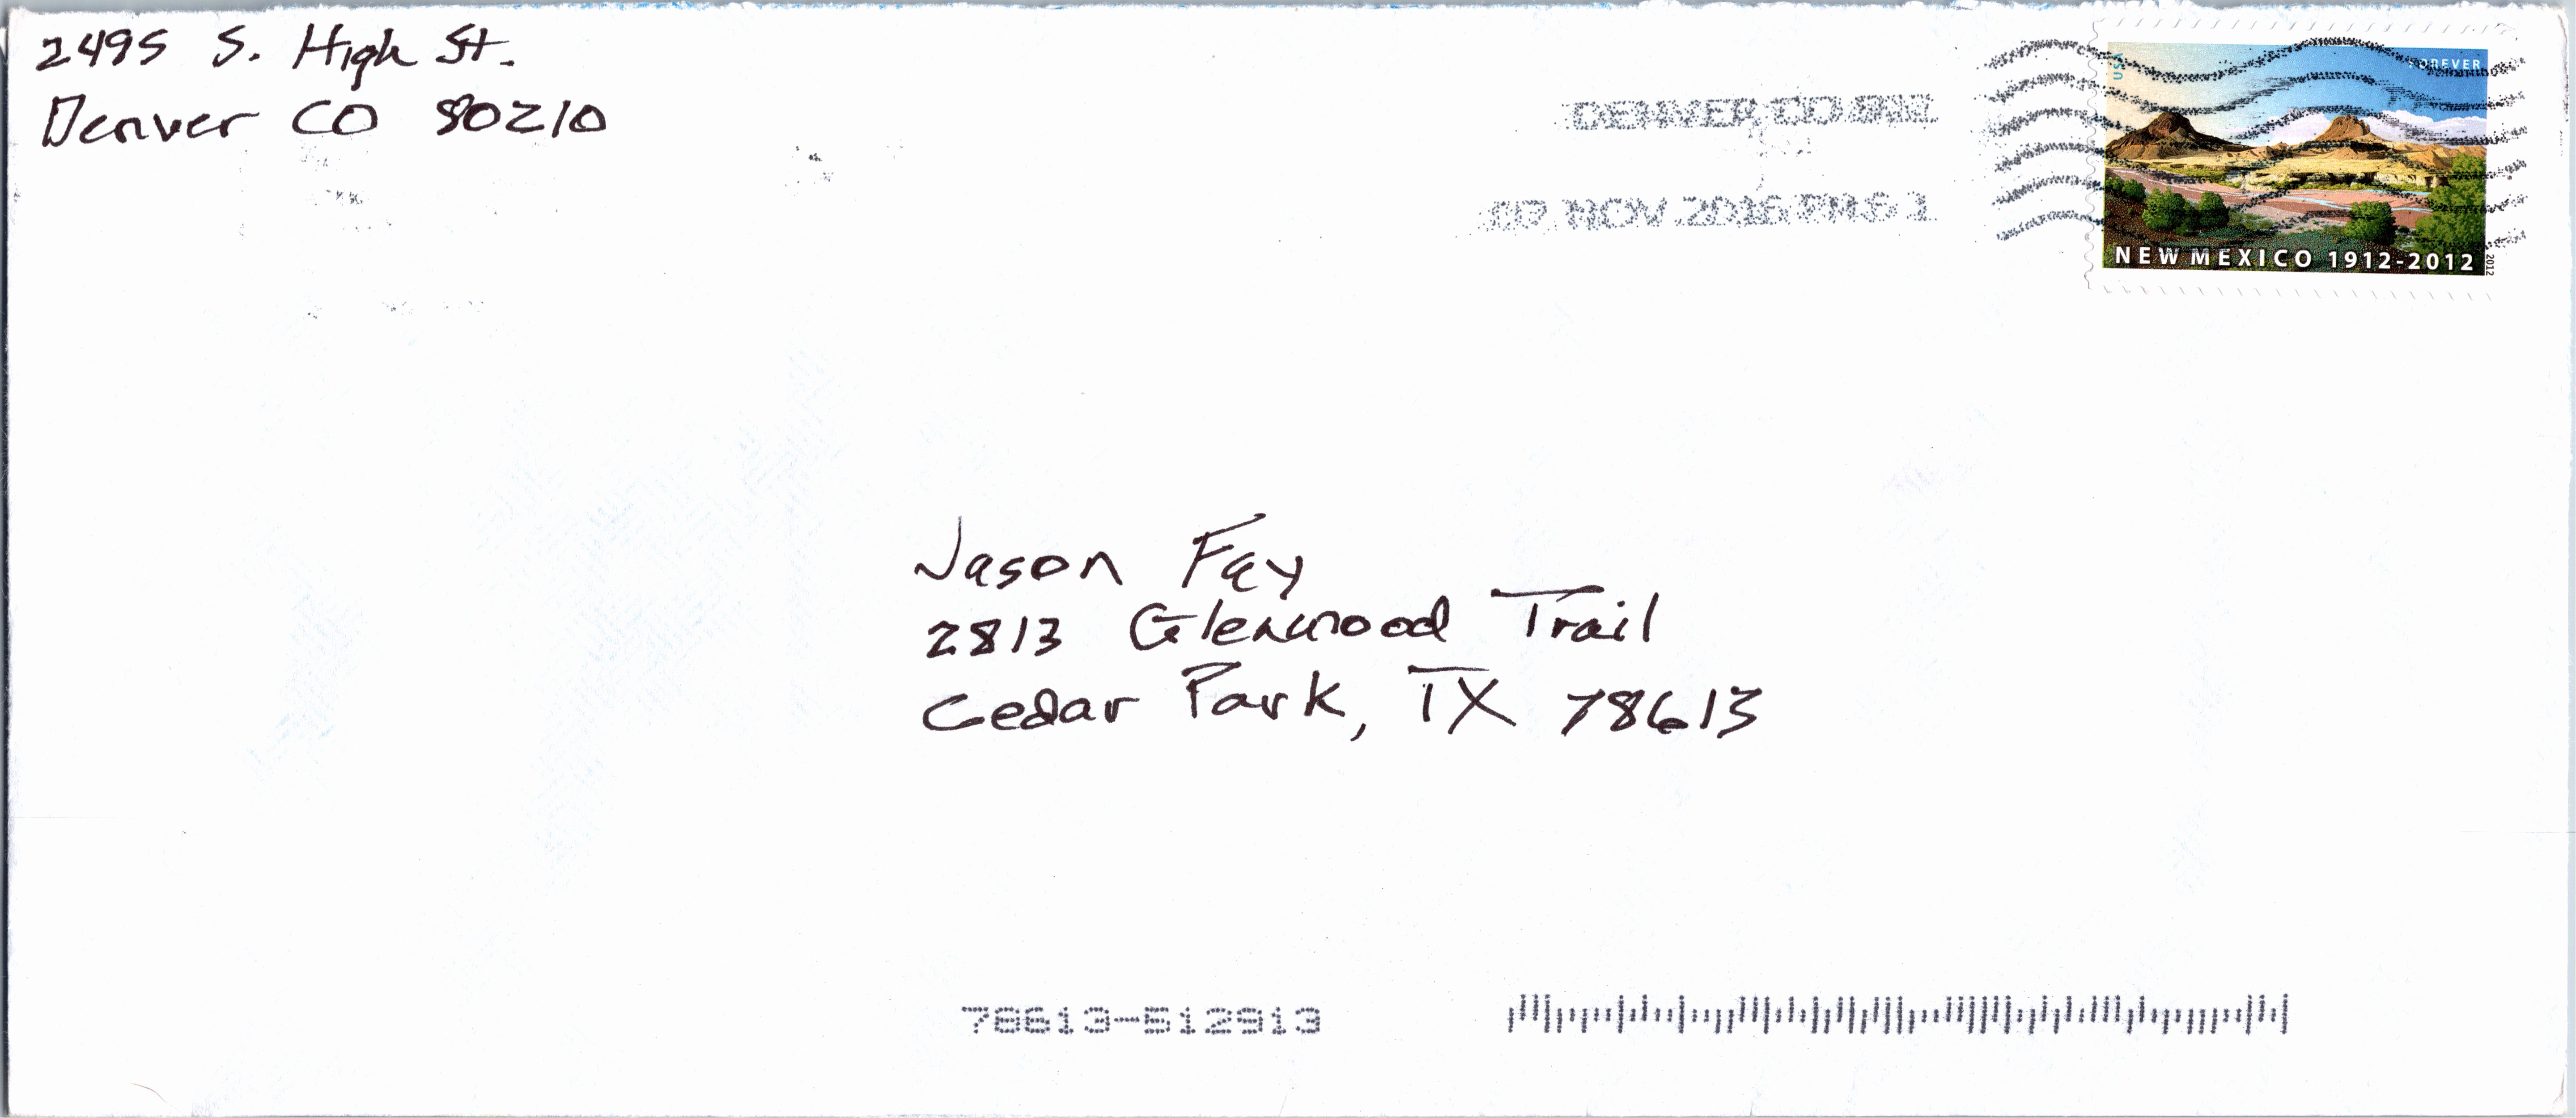 2495 S. High St.
Denver CO 80210
DENVER CO 802
07 NOV 2016 PM 6 1
USA
FOREVER
NEW MEXICO 1912-2012
2012
Jason Fay
2813 Glenwood Trail
Cedar Park, TX 78613
78613-512913